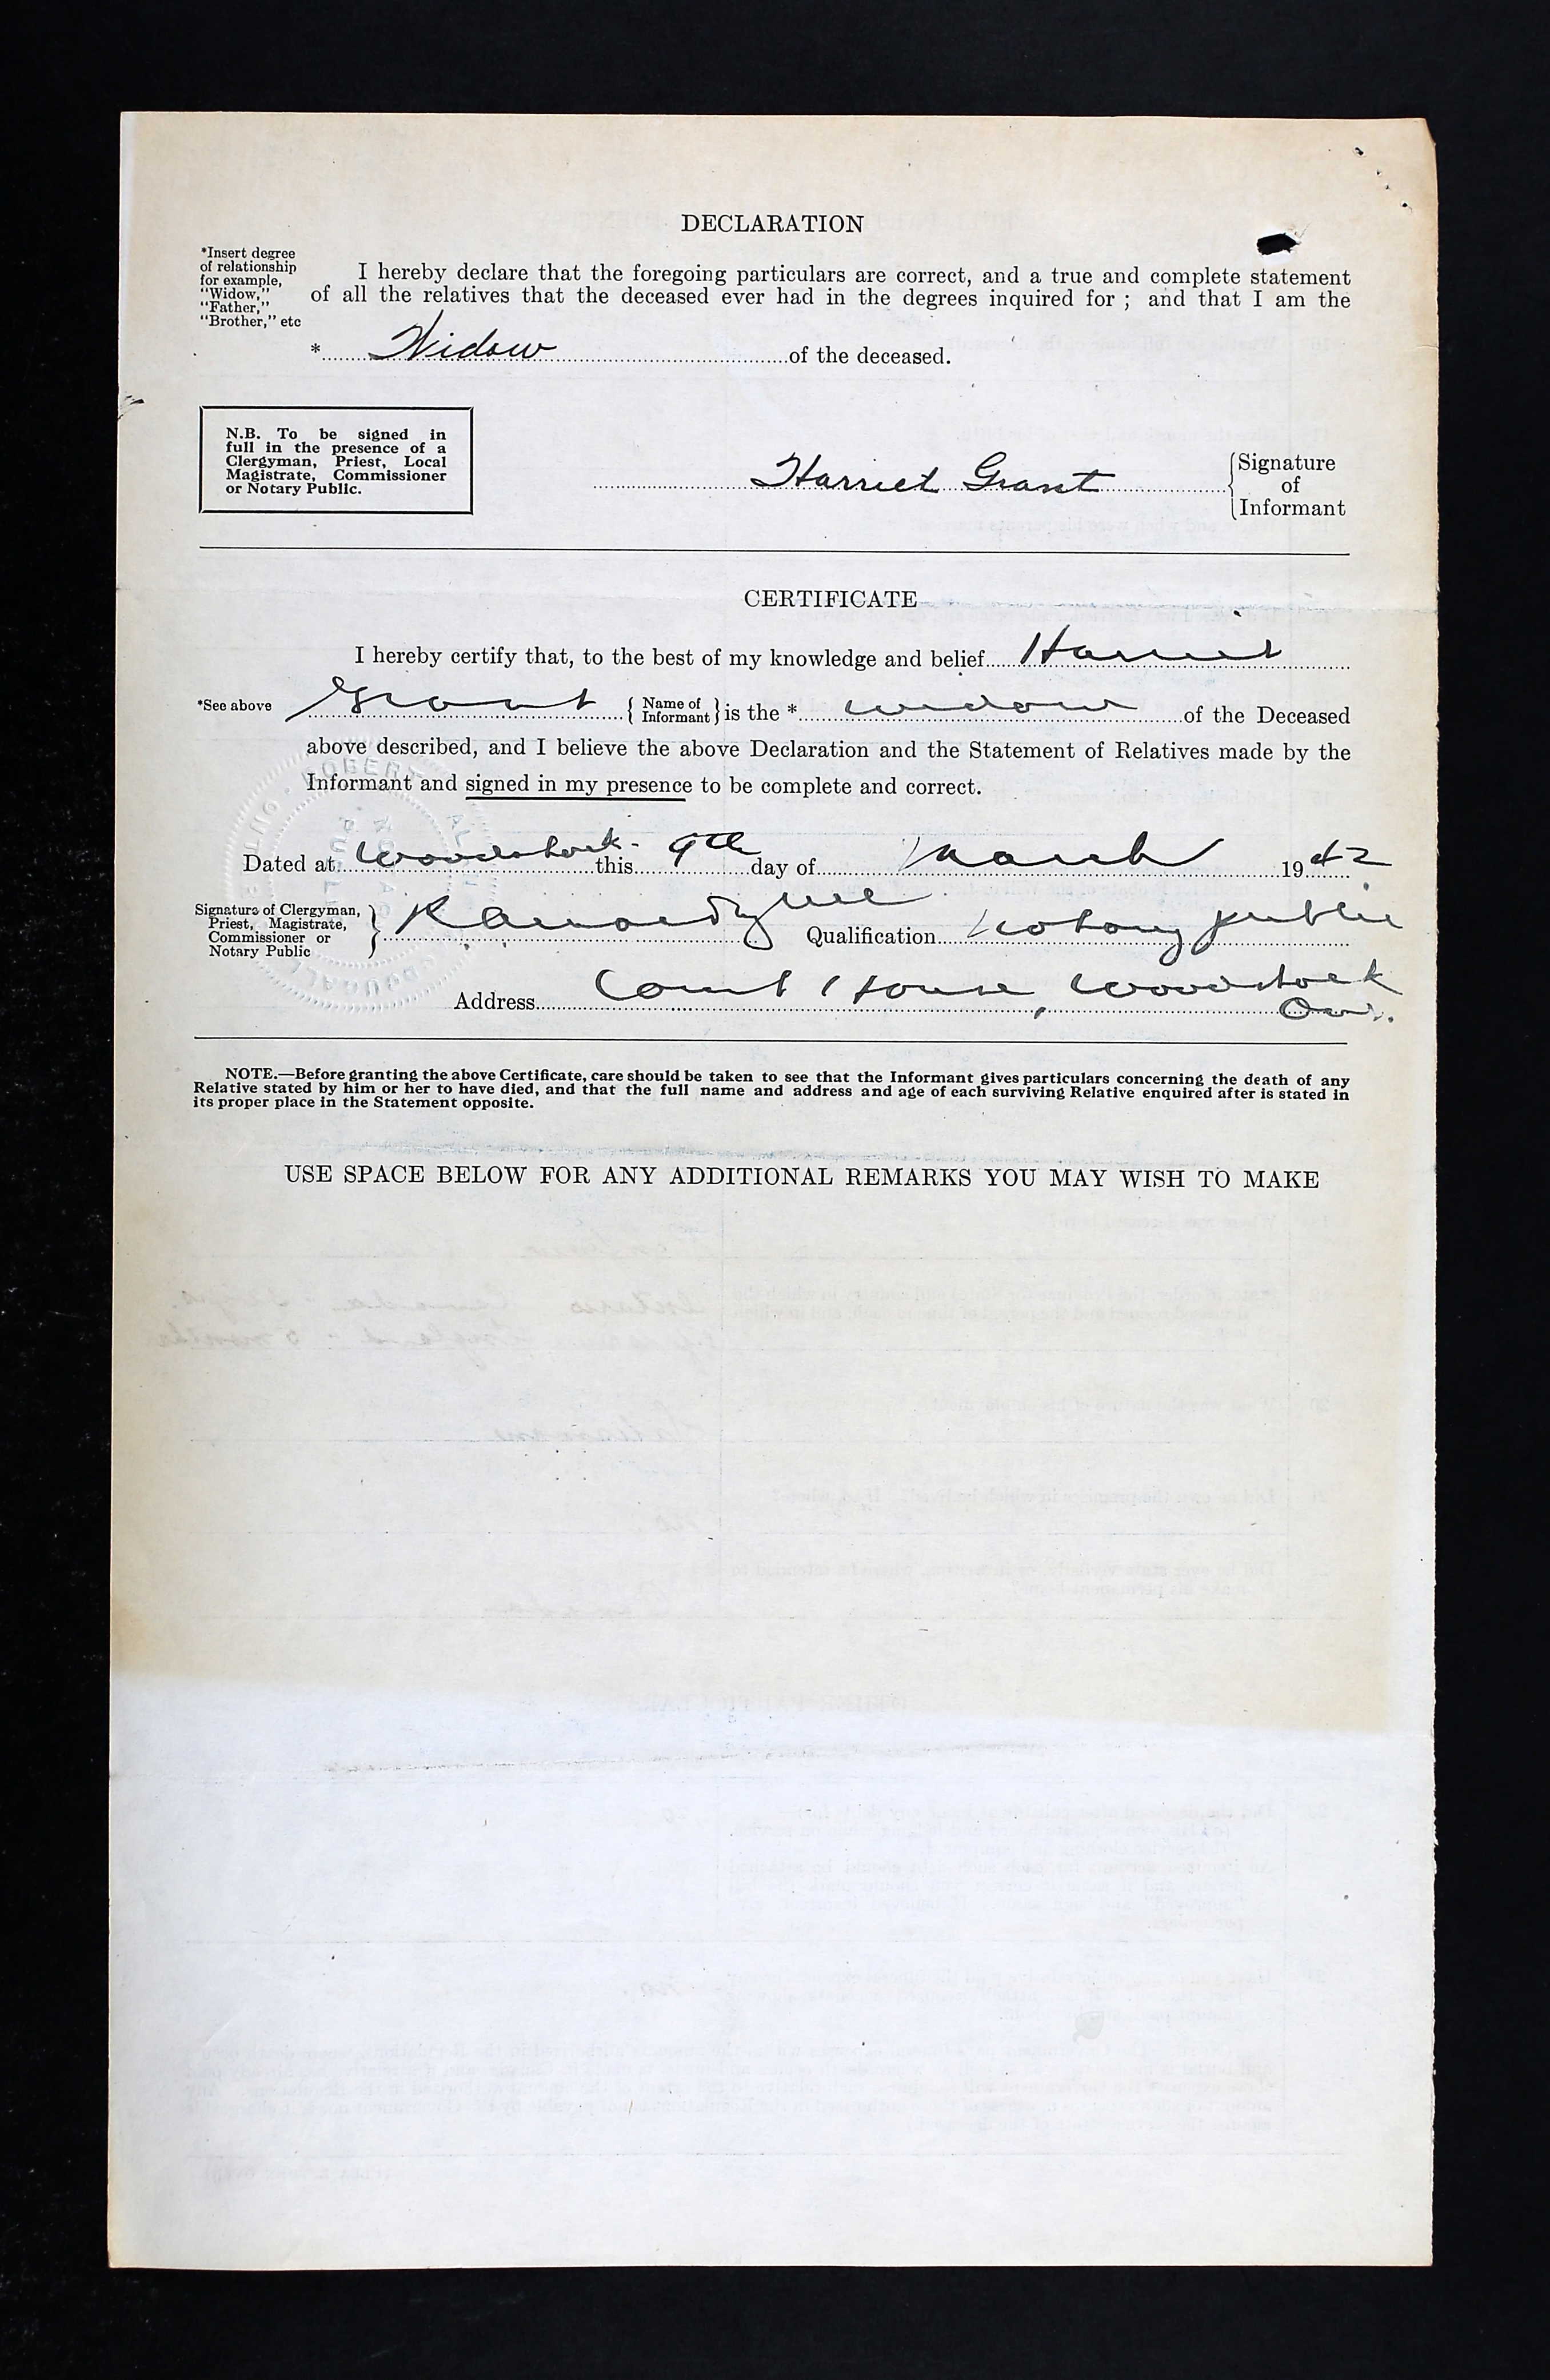 DECLARATION
*Insert degree
of relationship
for example,
"Widow,"
"Father,"
"Brother," etc
I hereby declare that the foregoing particulars are correct, and a true and complete statement
of all the relatives that the deceased ever had in the degrees inquired for ; and that I am the
* Widow of the deceased.
N.B. To be signed in
full in the presence of a
Clergyman, Priest, Local
Magistrate, Commissioner
or Notary Public.
Harriet Grant
Signature
of
Informant
CERTIFICATE
I hereby certify that, to the best of my knowledge and belief Harriet
*See above Grant { Name of Informant } is the * widow of the Deceased
above described, and I believe the above Declaration and the Statement of Relatives made by the
Informant and signed in my presence to be complete and correct.
Dated at Woodstock this 9th day of March 1942
Signature of Clergyman,
Priest, Magistrate,
Commissioner or
Notary Public
Qualification Notary public
Address Court House, Woodstock
Ont.
NOTE.—Before granting the above Certificate, care should be taken to see that the Informant gives particulars concerning the death of any
Relative stated by him or her to have died, and that the full name and address and age of each surviving Relative enquired after is stated in
its proper place in the Statement opposite.
USE SPACE BELOW FOR ANY ADDITIONAL REMARKS YOU MAY WISH TO MAKE